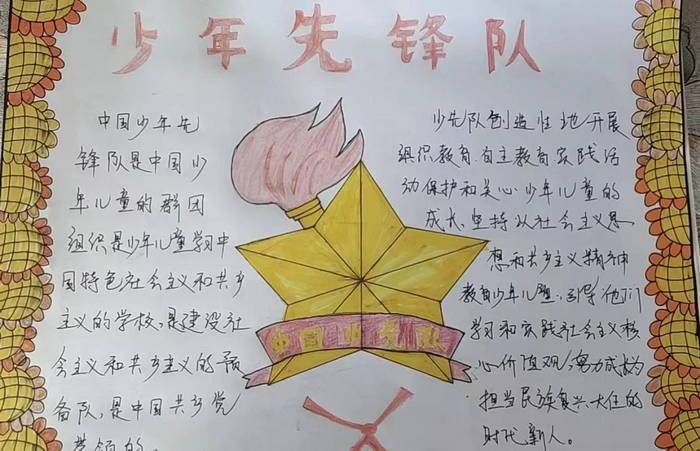 少年先锋队
中国少年先
锋队是中国少
年儿童的群团
组织是少年儿童学习中
国特色社会主义和共产
主义的学校,是建设社
会主义和共产主义的预
备队,是中国共产党
中国少先队
少先队创造性地开展
组织教育、自主教育、实践活
动保护和关心少年儿童的
成长、坚持以社会主义思
想和共产主义精神
教育少年儿童、引导他们
学习和实践社会主义核
心价值观,努力成长为
担当民族复兴大任的
时代新人。